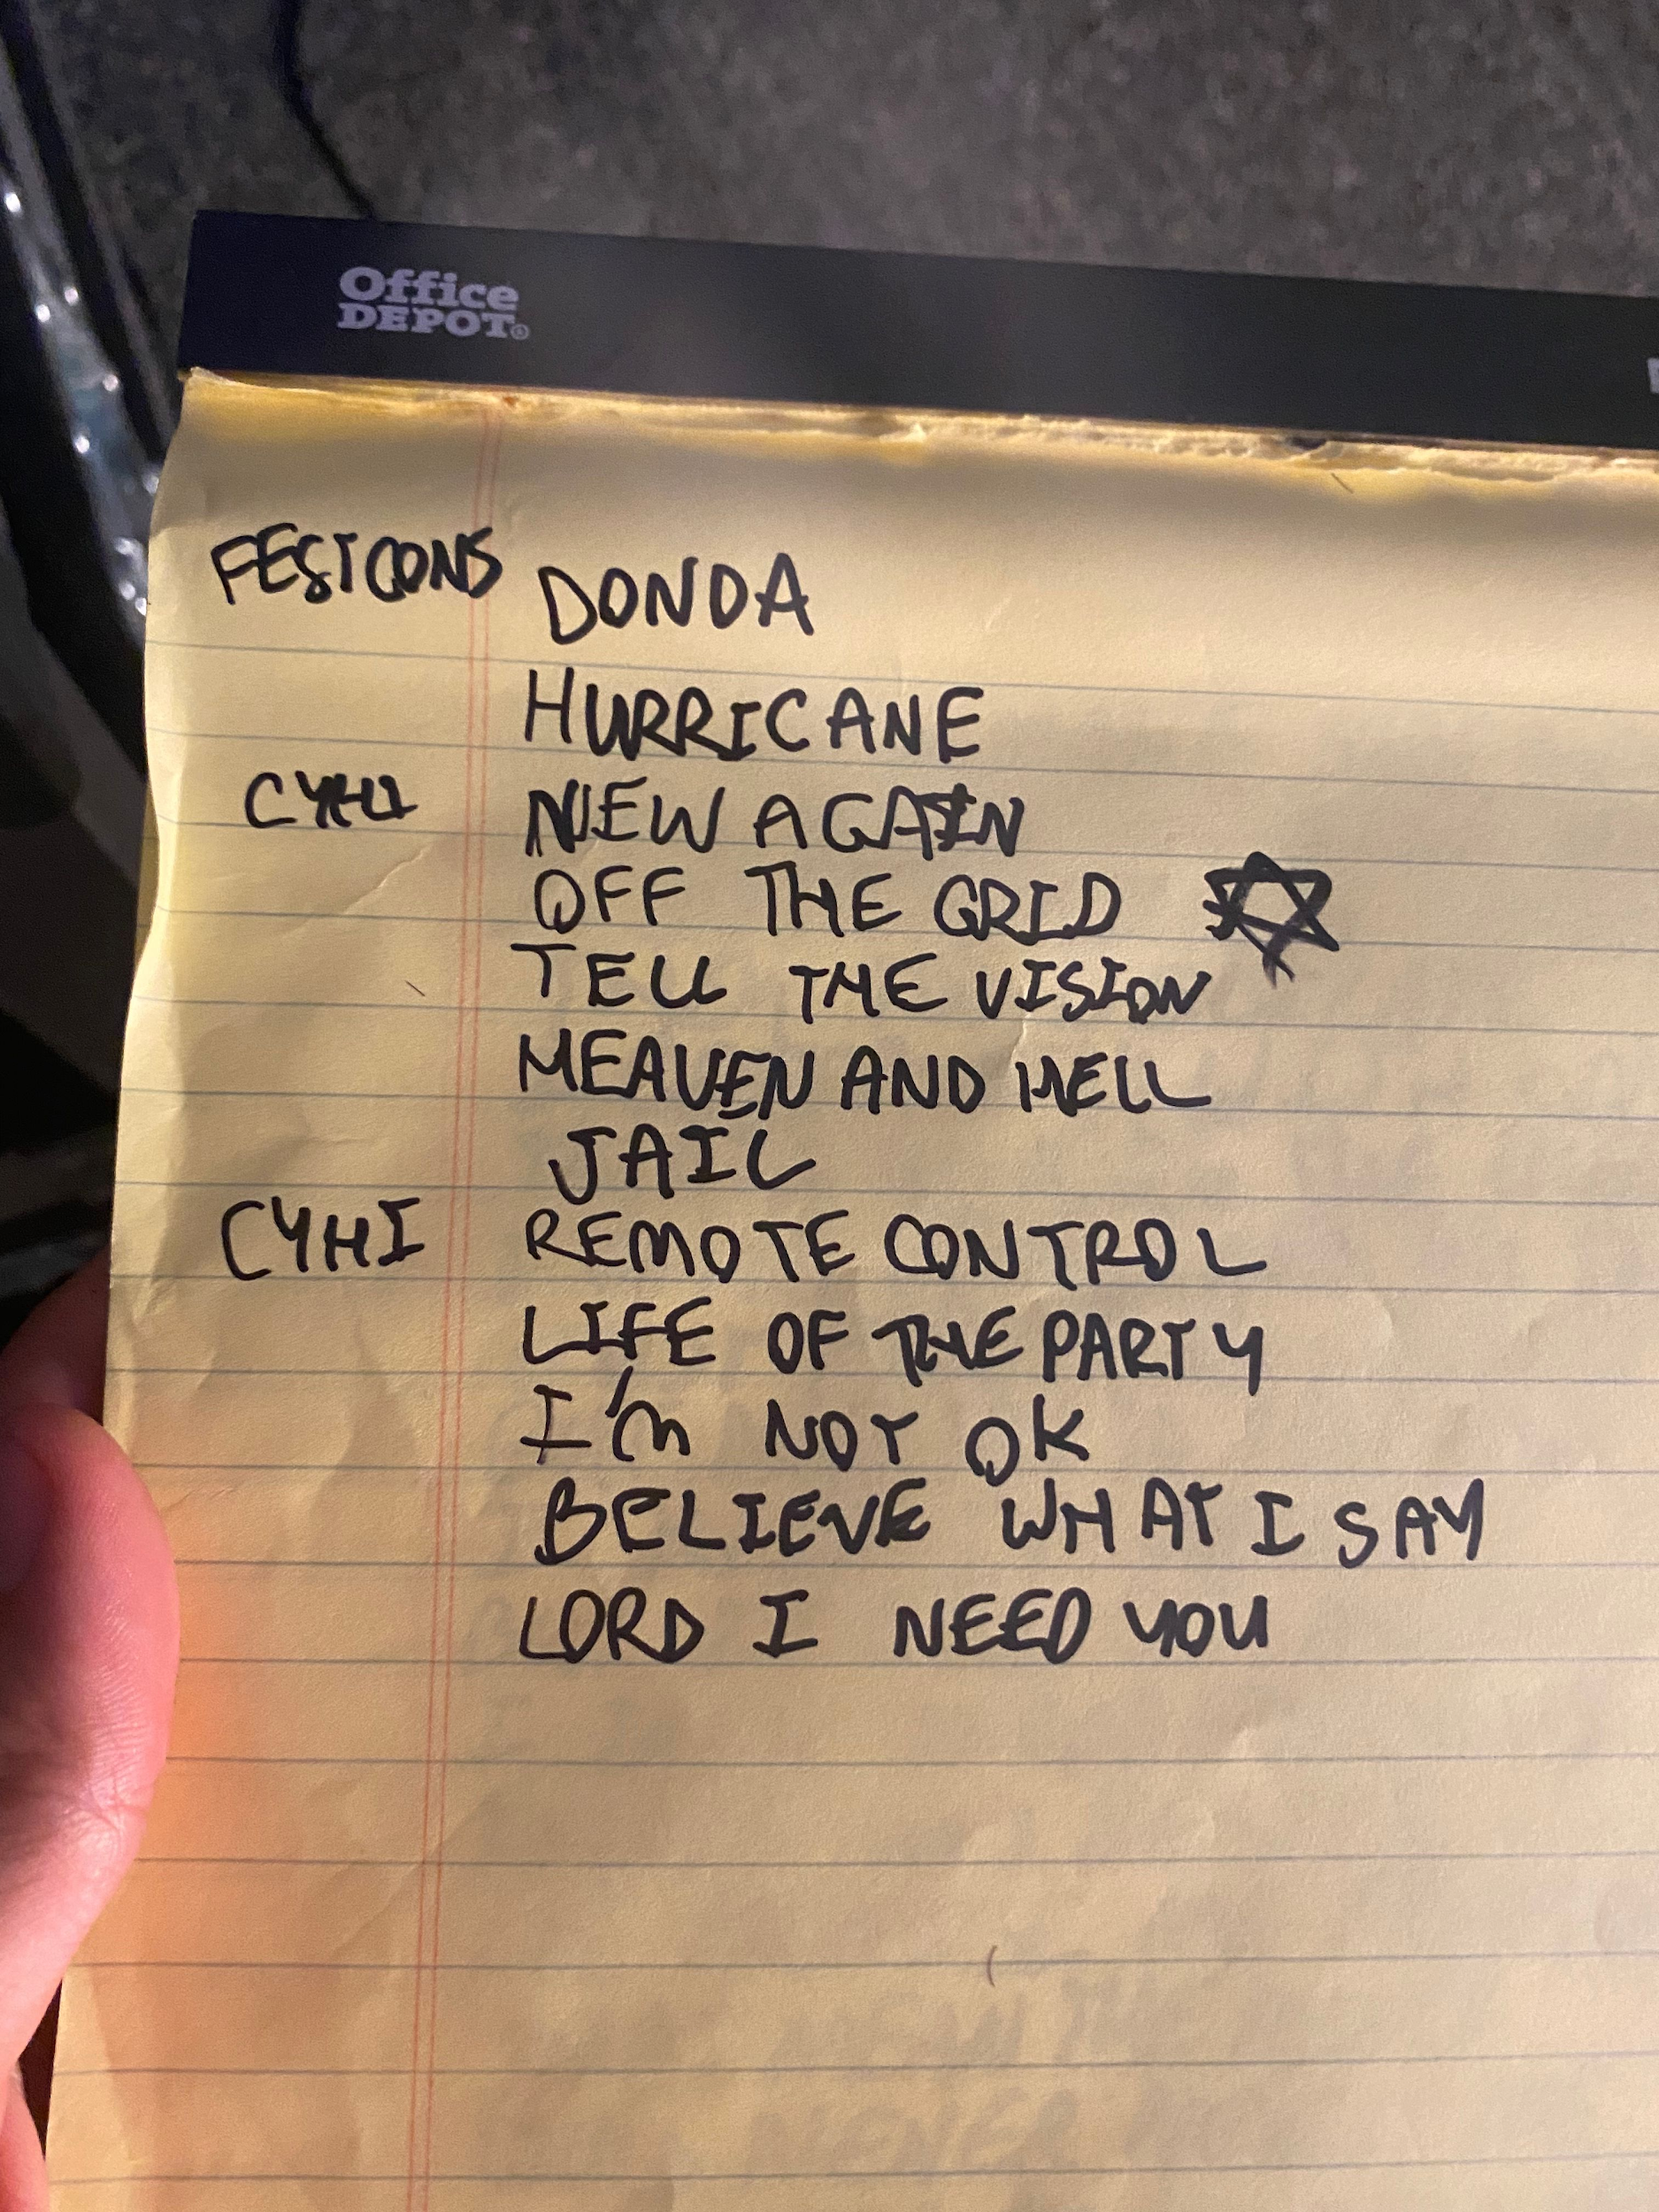 Office
DEPOT®
FESTCONS DONDA
HURRICANE
CYHI NEW AGAIN
OFF THE GRID
TELL THE VISION
HEAVEN AND HELL
JAIL
CYHI REMOTE CONTROL
LIFE OF THE PARTY
I'm NOT OK
BELIEVE WHAT I SAY
LORD I NEED YOU